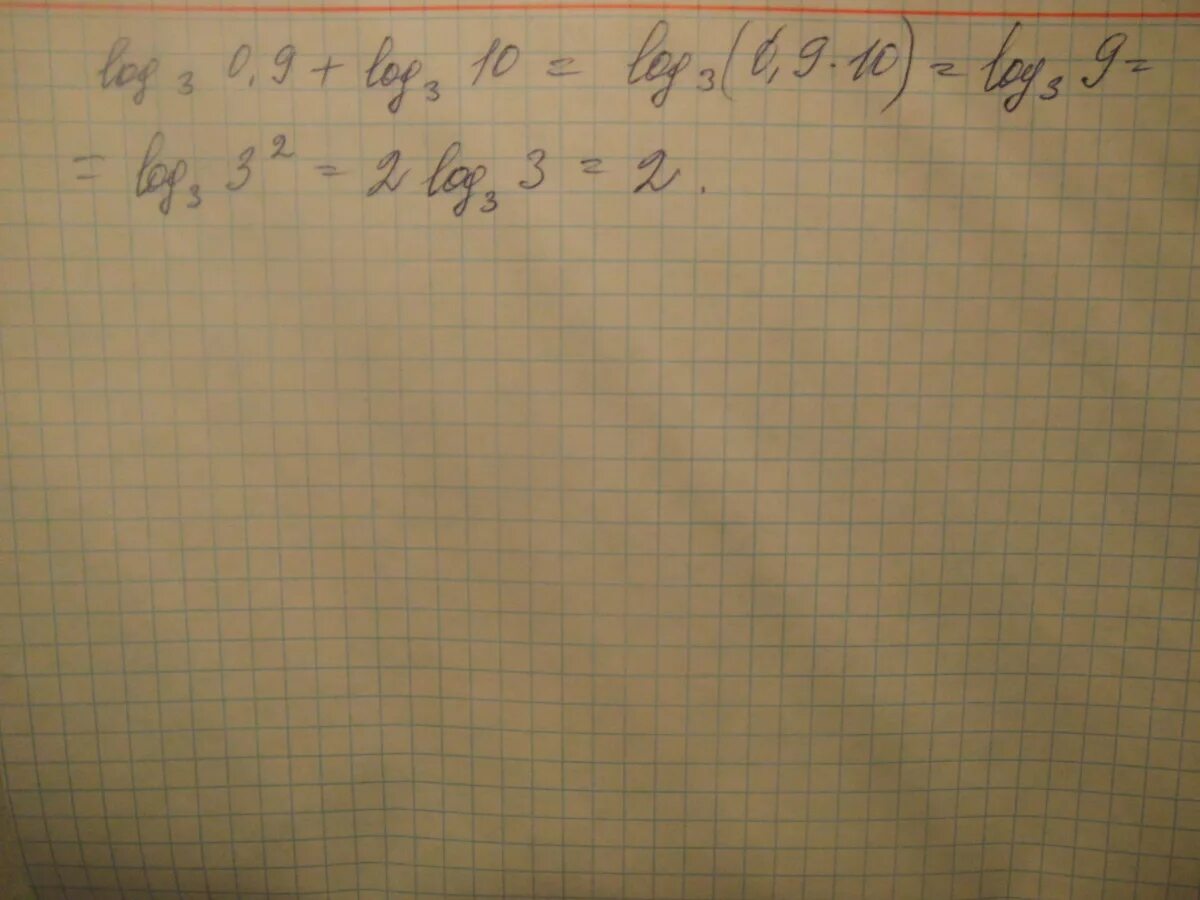 log₃ 0,9 + log₃ 10 = log₃(0,9·10) = log₃ 9 =
= log₃ 3² = 2 log₃ 3 = 2.